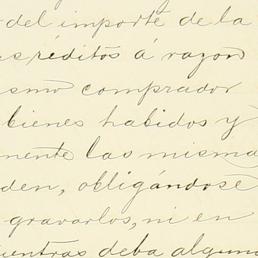 del importe de la
réditos á razon
smo comprador
bienes habidos y
mente las misma
den, obligándose
gravarlos, ni en
ientras deba alguna